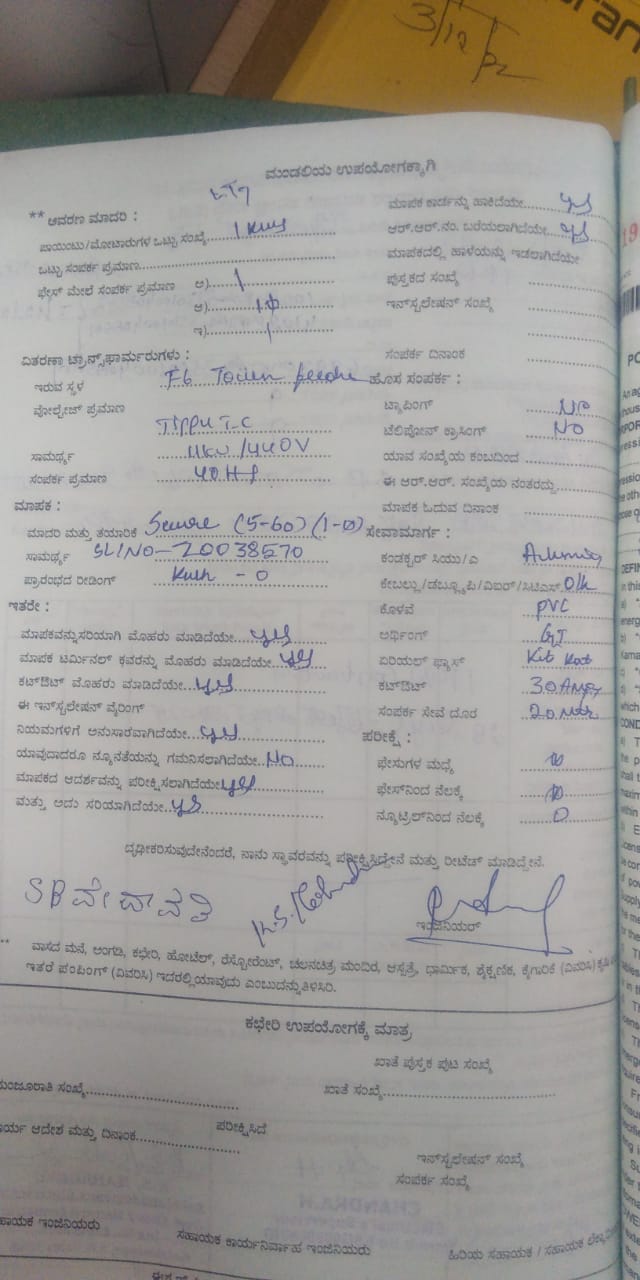 3/12/
ಮಂಡಲಿಯ ಉಪಯೋಗಕ್ಕಾಗಿ
LT7
** ಆವರಣ ಮಾದರಿ :
ಪಾಯಿಂಟು/ಮೋಟಾರುಗಳ ಒಟ್ಟು ಸಂಖ್ಯೆ 1 KW
ಒಟ್ಟು ಸಂಪರ್ಕ ಪ್ರಮಾಣ
ಫೇಸ್ ಮೇಲೆ ಸಂಪರ್ಕ ಪ್ರಮಾಣ ಅ)
ಆ) 1Φ
ಇ)
ವಿತರಣಾ ಟ್ರಾನ್ಸ್‌ಫಾರ್ಮರುಗಳು :
ಇರುವ ಸ್ಥಳ F6 Town feeder
ವೋಲ್ಟೇಜ್ ಪ್ರಮಾಣ
TIPPU T-C
ಸಾಮರ್ಥ್ಯ 11KV/440V
ಸಂಪರ್ಕ ಪ್ರಮಾಣ 40 HP
ಮಾಪಕ :
ಮಾದರಿ ಮತ್ತು ತಯಾರಿಕೆ Secure (5-60) (1-Φ)
ಸಾಮರ್ಥ್ಯ SL/NO-20038570
ಪ್ರಾರಂಭದ ರೀಡಿಂಗ್ Kwh - 0
ಇತರೇ :
ಮಾಪಕವನ್ನು ಸರಿಯಾಗಿ ಮೊಹರು ಮಾಡಿದೆಯೇ yes
ಮಾಪಕ ಟರ್ಮಿನಲ್ ಕವರನ್ನು ಮೊಹರು ಮಾಡಿದೆಯೇ yes
ಕಟ್‌ಔಟ್ ಮೊಹರು ಮಾಡಿದೆಯೇ yes
ಈ ಇನ್‌ಸ್ಟಲೇಷನ್ ವೈರಿಂಗ್
ನಿಯಮಗಳಿಗೆ ಅನುಸಾರವಾಗಿದೆಯೇ yes
ಯಾವುದಾದರೂ ನ್ಯೂನತೆಯನ್ನು ಗಮನಿಸಲಾಗಿದೆಯೇ NO
ಮಾಪಕದ ಆದರ್ಶವನ್ನು ಪರೀಕ್ಷಿಸಲಾಗಿದೆಯೇ yes
ಮತ್ತು ಅದು ಸರಿಯಾಗಿದೆಯೇ yes
ಮಾಪಕ ಕಾರ್ಡನ್ನು ಹಾಕಿದೆಯೇ yes
ಆರ್.ಆರ್.ನಂ. ಬರೆಯಲಾಗಿದೆಯೇ yes
ಮಾಪಕದಲ್ಲಿ ಹಾಳೆಯನ್ನು ಇಡಲಾಗಿದೆಯೇ
ಪುಸ್ತಕದ ಸಂಖ್ಯೆ
ಇನ್‌ಸ್ಟಲೇಷನ್ ಸಂಖ್ಯೆ
ಸಂಪರ್ಕ ದಿನಾಂಕ
ಹೊಸ ಸಂಪರ್ಕ :
ಟ್ಯಾಪಿಂಗ್ NO
ಟೆಲಿಫೋನ್ ಕ್ರಾಸಿಂಗ್ NO
ಯಾವ ಸಂಖ್ಯೆಯ ಕಂಬದಿಂದ
ಈ ಆರ್.ಆರ್. ಸಂಖ್ಯೆಯ ನಂತರದ್ದು
ಮಾಪಕ ಓದುವ ದಿನಾಂಕ
ಸೇವಾಮಾರ್ಗ :
ಕಂಡಕ್ಟರ್ ಸಿಯು/ಎ
ಕೇಬಲ್ಲು/ಡಬ್ಲ್ಯೂಪಿ/ವಿಐರ್/ಸಿಟಿಎಸ್ O/h
ಕೊಳವೆ PVC
ಅರ್ಥಿಂಗ್ GI
ಏರಿಯಲ್ ಫ್ಯೂಸ್ Kit Kat
ಕಟ್‌ಔಟ್ 30 Amps
ಸಂಪರ್ಕ ಸೇವೆ ದೂರ 20 Mtr
ಪರೀಕ್ಷೆ :
ಫೇಸುಗಳ ಮಧ್ಯೆ 10
ಫೇಸ್‌ನಿಂದ ನೆಲಕ್ಕೆ 10
ನ್ಯೂಟ್ರಲ್‌ನಿಂದ ನೆಲಕ್ಕೆ 0
ದೃಢೀಕರಿಸುವುದೇನೆಂದರೆ, ನಾನು ಸ್ಥಾವರವನ್ನು ಪರೀಕ್ಷಿಸಿದ್ದೇನೆ ಮತ್ತು ರೀಟೆಡ್ ಮಾಡಿದ್ದೇನೆ.
SB ವೇದಾವತಿ
ಇಂಜಿನಿಯರ್
** ವಾಸದ ಮನೆ, ಅಂಗಡಿ, ಕಛೇರಿ, ಹೋಟೆಲ್, ರೆಸ್ಟೋರೆಂಟ್, ಚಲನಚಿತ್ರ ಮಂದಿರ, ಆಸ್ಪತ್ರೆ, ಧಾರ್ಮಿಕ, ಶೈಕ್ಷಣಿಕ, ಕೈಗಾರಿಕೆ (ವಿವರಿಸಿ)
ಇತರೆ ಪಂಪಿಂಗ್ (ವಿವರಿಸಿ) ಇದರಲ್ಲಿ ಯಾವುದು ಎಂಬುದನ್ನು ತಿಳಿಸಿರಿ.
ಕಛೇರಿ ಉಪಯೋಗಕ್ಕೆ ಮಾತ್ರ
ಖಾತೆ ಪುಸ್ತಕ ಪುಟ ಸಂಖ್ಯೆ
ಮಂಜೂರಾತಿ ಸಂಖ್ಯೆ
ಖಾತೆ ಸಂಖ್ಯೆ
ಕಾರ್ಯ ಆದೇಶ ಮತ್ತು ದಿನಾಂಕ
ಪರೀಕ್ಷಿಸಿದೆ
ಇನ್‌ಸ್ಟಲೇಷನ್ ಸಂಖ್ಯೆ
ಸಂಪರ್ಕ ಸಂಖ್ಯೆ
ಸಹಾಯಕ ಇಂಜಿನಿಯರು
ಸಹಾಯಕ ಕಾರ್ಯನಿರ್ವಾಹ ಇಂಜಿನಿಯರು
ಹಿರಿಯ ಸಹಾಯಕ / ಸಹಾಯಕ